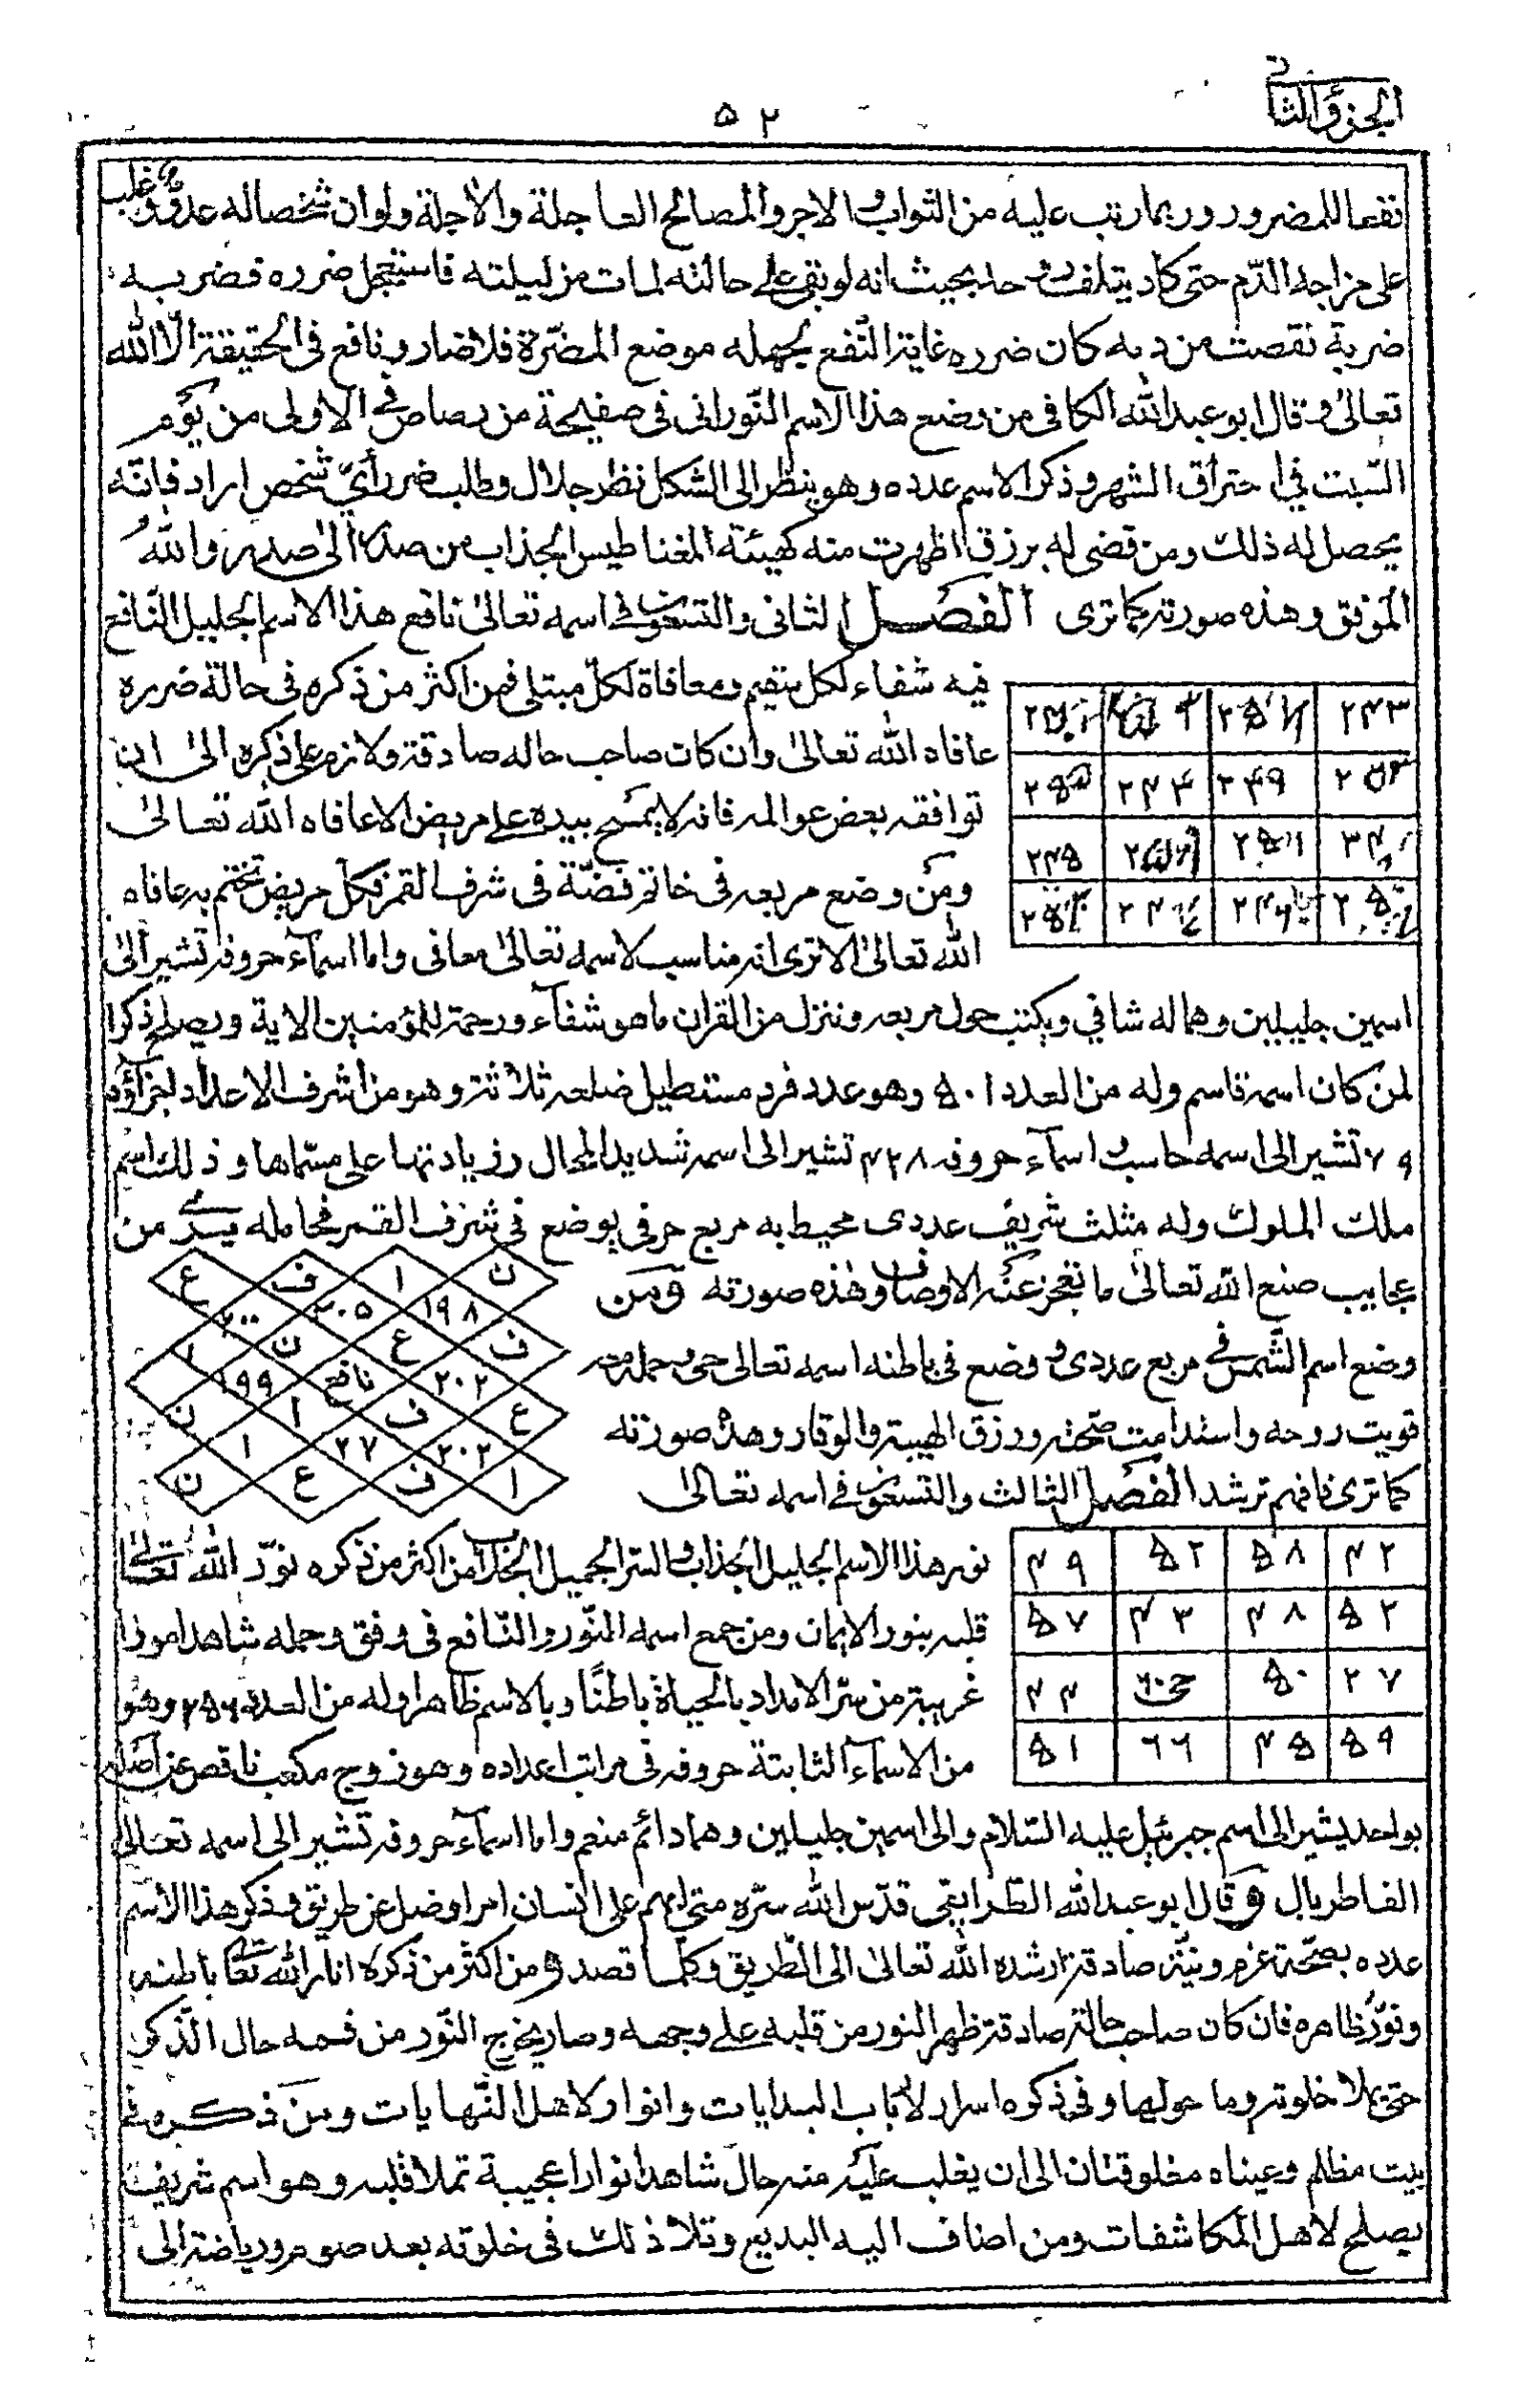 الجزؤ الثانى
٥٢
نفعا للمضرور وربما رتب عليه من الثواب والاجر والمصالح العاجلة والاجلة ولو ان شخصا له عدو وقد غلب
على مزاجه الدّم حتى كاد يتلف بحيث انه لو بقى على حالته لمات من ليلته فاستعجل ضرره فضربه
ضربة نقصت من دمه كان ضرره غاية النّفع لجهله موضع المضرّة فلا ضار ونافع فى الحقيقة الّا الله
تعالىٰ وقال ابو عبد الله الكافى من وضع هذا الاسم النّورانى فى صفيحة من رصاص فى الاولى من يوم
السّبت في احتراق الشهر وذكر الاسم عدده وهو ينظر الى الشكل نظر جلال وطلب ضرر أيّ شخص اراد فانّه
يحصل له ذلك ومن قضى له برزق اظهرت منه كهيئة المغناطيس الجذاب من صدره الىٰ صدره والله
الموفق وهذه صورته كما ترى الفصل الثانى والتسعون فى اسمه تعالىٰ نافع هذا الاسم الجليل النّافع
فيه شفاء لكل سقيم ومعافاة لكلّ مبتلى فمن اكثر من ذكره فى حالة ضرره
عافاه الله تعالىٰ وان كان صاحب حاله صادقة ولازم على ذكره الىٰ ان
توافقه بعض عوالمه فانه لا يمسح بيده على مريض الا عافاه الله تعالىٰ
ومن وضع مربعه فى خاتم فضّة فى شرف القمر فكل مريض تختم به عافاه
الله تعالىٰ الا ترى انه مناسب لاسمه تعالىٰ معافى واما اسمآء حروفه تشير الىٰ
٢٤٣
٢٤٩ ٢٤٤
٢٤٥
اسمين جليلين وهما له شافي ويكتب حول مربعه وننزل من القران ما هو شفآء ورحمة للمؤمنين الاية ويصلح ذكرا
لمن كان اسمه قاسم وله من العدد ٢٠١ وهو عدد فرد مستطيل ضلعه ثلاثة وهو من اشرف الاعداد اجزاؤه
٧٩ تشير الى اسمه حاسب واسمآء حروفه ٤٢٨ تشير الى اسمه شديد المحال زيادتها على مسمّاها وذلك اسم
ملك الملوك وله مثلث شريف عددى محيط به مربع حرفى يوضع فى شرف القمر فحامله يرى من
عجايب صنع الله تعالىٰ ما تعجز عنه الاوصاف وهذه صورته ومن
وضع اسم الشّمس فى مربع عددى ووضع فى باطنه اسمه تعالى حى وحمله
قويت روحه واستدامت صحّته ورزق الهيبة والوقار وهذه صورته
كما ترى فافهم ترشد الفصل الثالث والتسعون فى اسمه تعالىٰ
ن ا ف ع
١٩٨ ٢٠٥ ٢٠٠
ف ع ن ا
٢٠٢ نافع ١٩٩
ع ف ا ن
٢٠٢ ٢٧ ١
ا ف ع ن
نور هذا الاسم الجليل الجذاب والسّر الجميل من اكثر من ذكره نوّر الله تعالىٰ
قلبه بنور الايمان ومن جمع اسمه النّور والنّافع فى وفق وحمله شاهد امورا
غريبة من سرّ الامداد بالحياة باطنًا وبالاسم ظاهرا وله من العدد ٢٥٦ وهو
من الاسمآء الثابتة حروفه فى مراتب اعداده وهو زوج مكعب ناقص عن اصله
٤٢ ٥٨ ٥٢ ٤٩
٥٢ ٤٨ ٤٣ ٥٧
٢٧ ٥٠ حى ٦٠ ٤٤
٥٩ ٤٥ ٦٦ ٥١
بواحد يشير الى اسم جبرئيل عليه السّلام والى اسمين جليلين وهما دائم منعم واما اسمآء حروفه تشير الى اسمه تعالىٰ
الفاطر بال وقال ابو عبد الله الطّرايقى قدّس الله سرّه متى ابهم على انسان امرا وضل عن طريق وذكر هذا الاسم
عدده بصحّة عزم ونيّة صادقة ارشده الله تعالىٰ الى الطّريق وكلّما قصد ومن اكثر من ذكره انار الله تعالى باطنه
ونوّر ظاهره فان كان صاحب حالة صادقة ظهر النور من قلبه على وجهه وصار يخرج النّور من فمه حال الذّكر
حتى يملا خلوته وما حولها وفى ذكره اسرار لارباب البدايات وانوار لاهل النّهايات ومن ذكره فى
بيت مظلم وعيناه مغلوقتان الى ان يغلب عليه منه حال شاهد انوارا عجيبة تملا قلبه وهو اسم شريف
يصلح لاهل المكاشفات ومن اضاف اليه البديع وتلا ذلك فى خلوته بعد صوم ورياضة الى